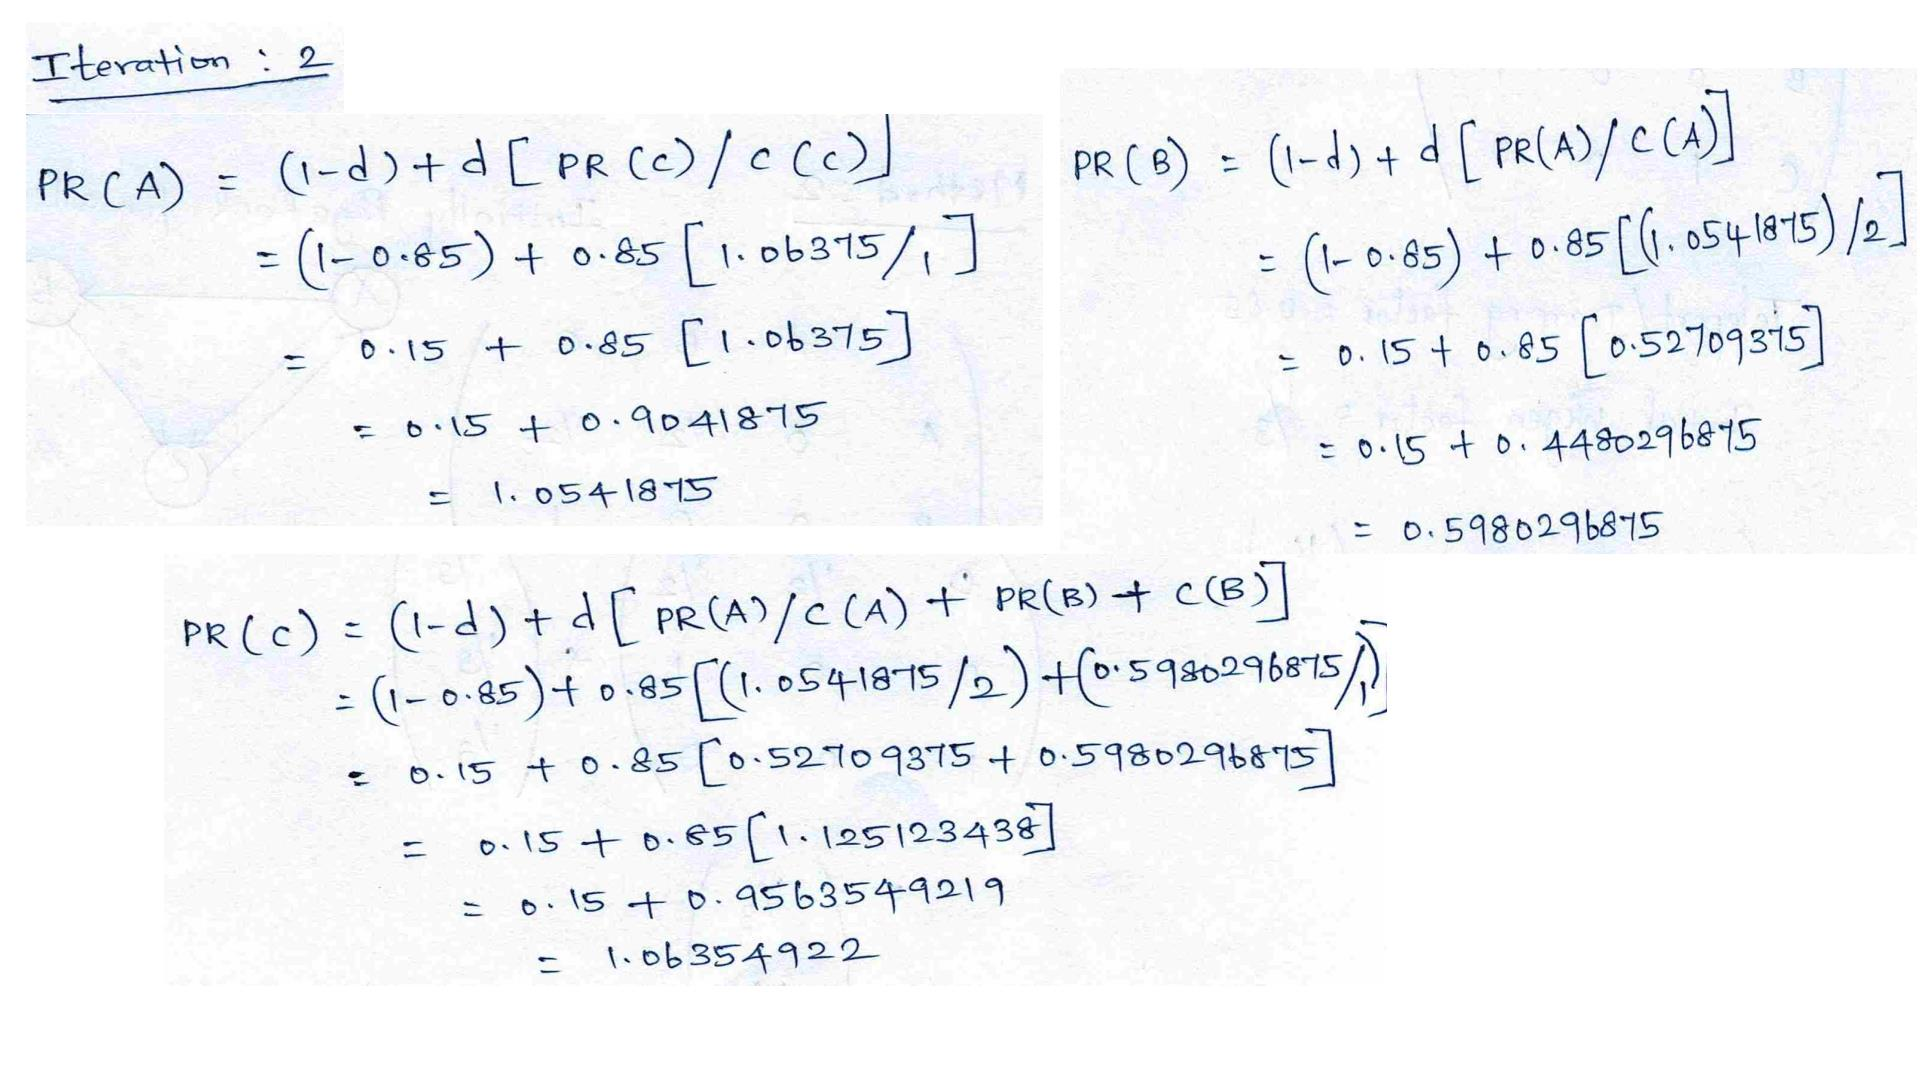 Iteration : 2
PR (A) = (1-d) + d [ PR (C) / C (C)]
= (1- 0.85) + 0.85 [ 1.06375/1 ]
= 0.15 + 0.85 [1.06375]
= 0.15 + 0.9041875
= 1.0541875
PR (B) = (1-d) + d [ PR(A) / C (A)]
= (1- 0.85) + 0.85 [(1.0541875) /2]
= 0.15 + 0.85 [0.52709375]
= 0.15 + 0.4480296875
= 0.5980296875
PR (C) = (1-d) + d [ PR (A) / C (A) + PR(B) + C (B)]
= (1- 0.85) + 0.85 [(1.0541875 /2) + (0.5980296875/1)]
= 0.15 + 0.85 [0.52709375 + 0.5980296875]
= 0.15 + 0.85 [1.125123438]
= 0.15 + 0.9563549219
= 1.06354922